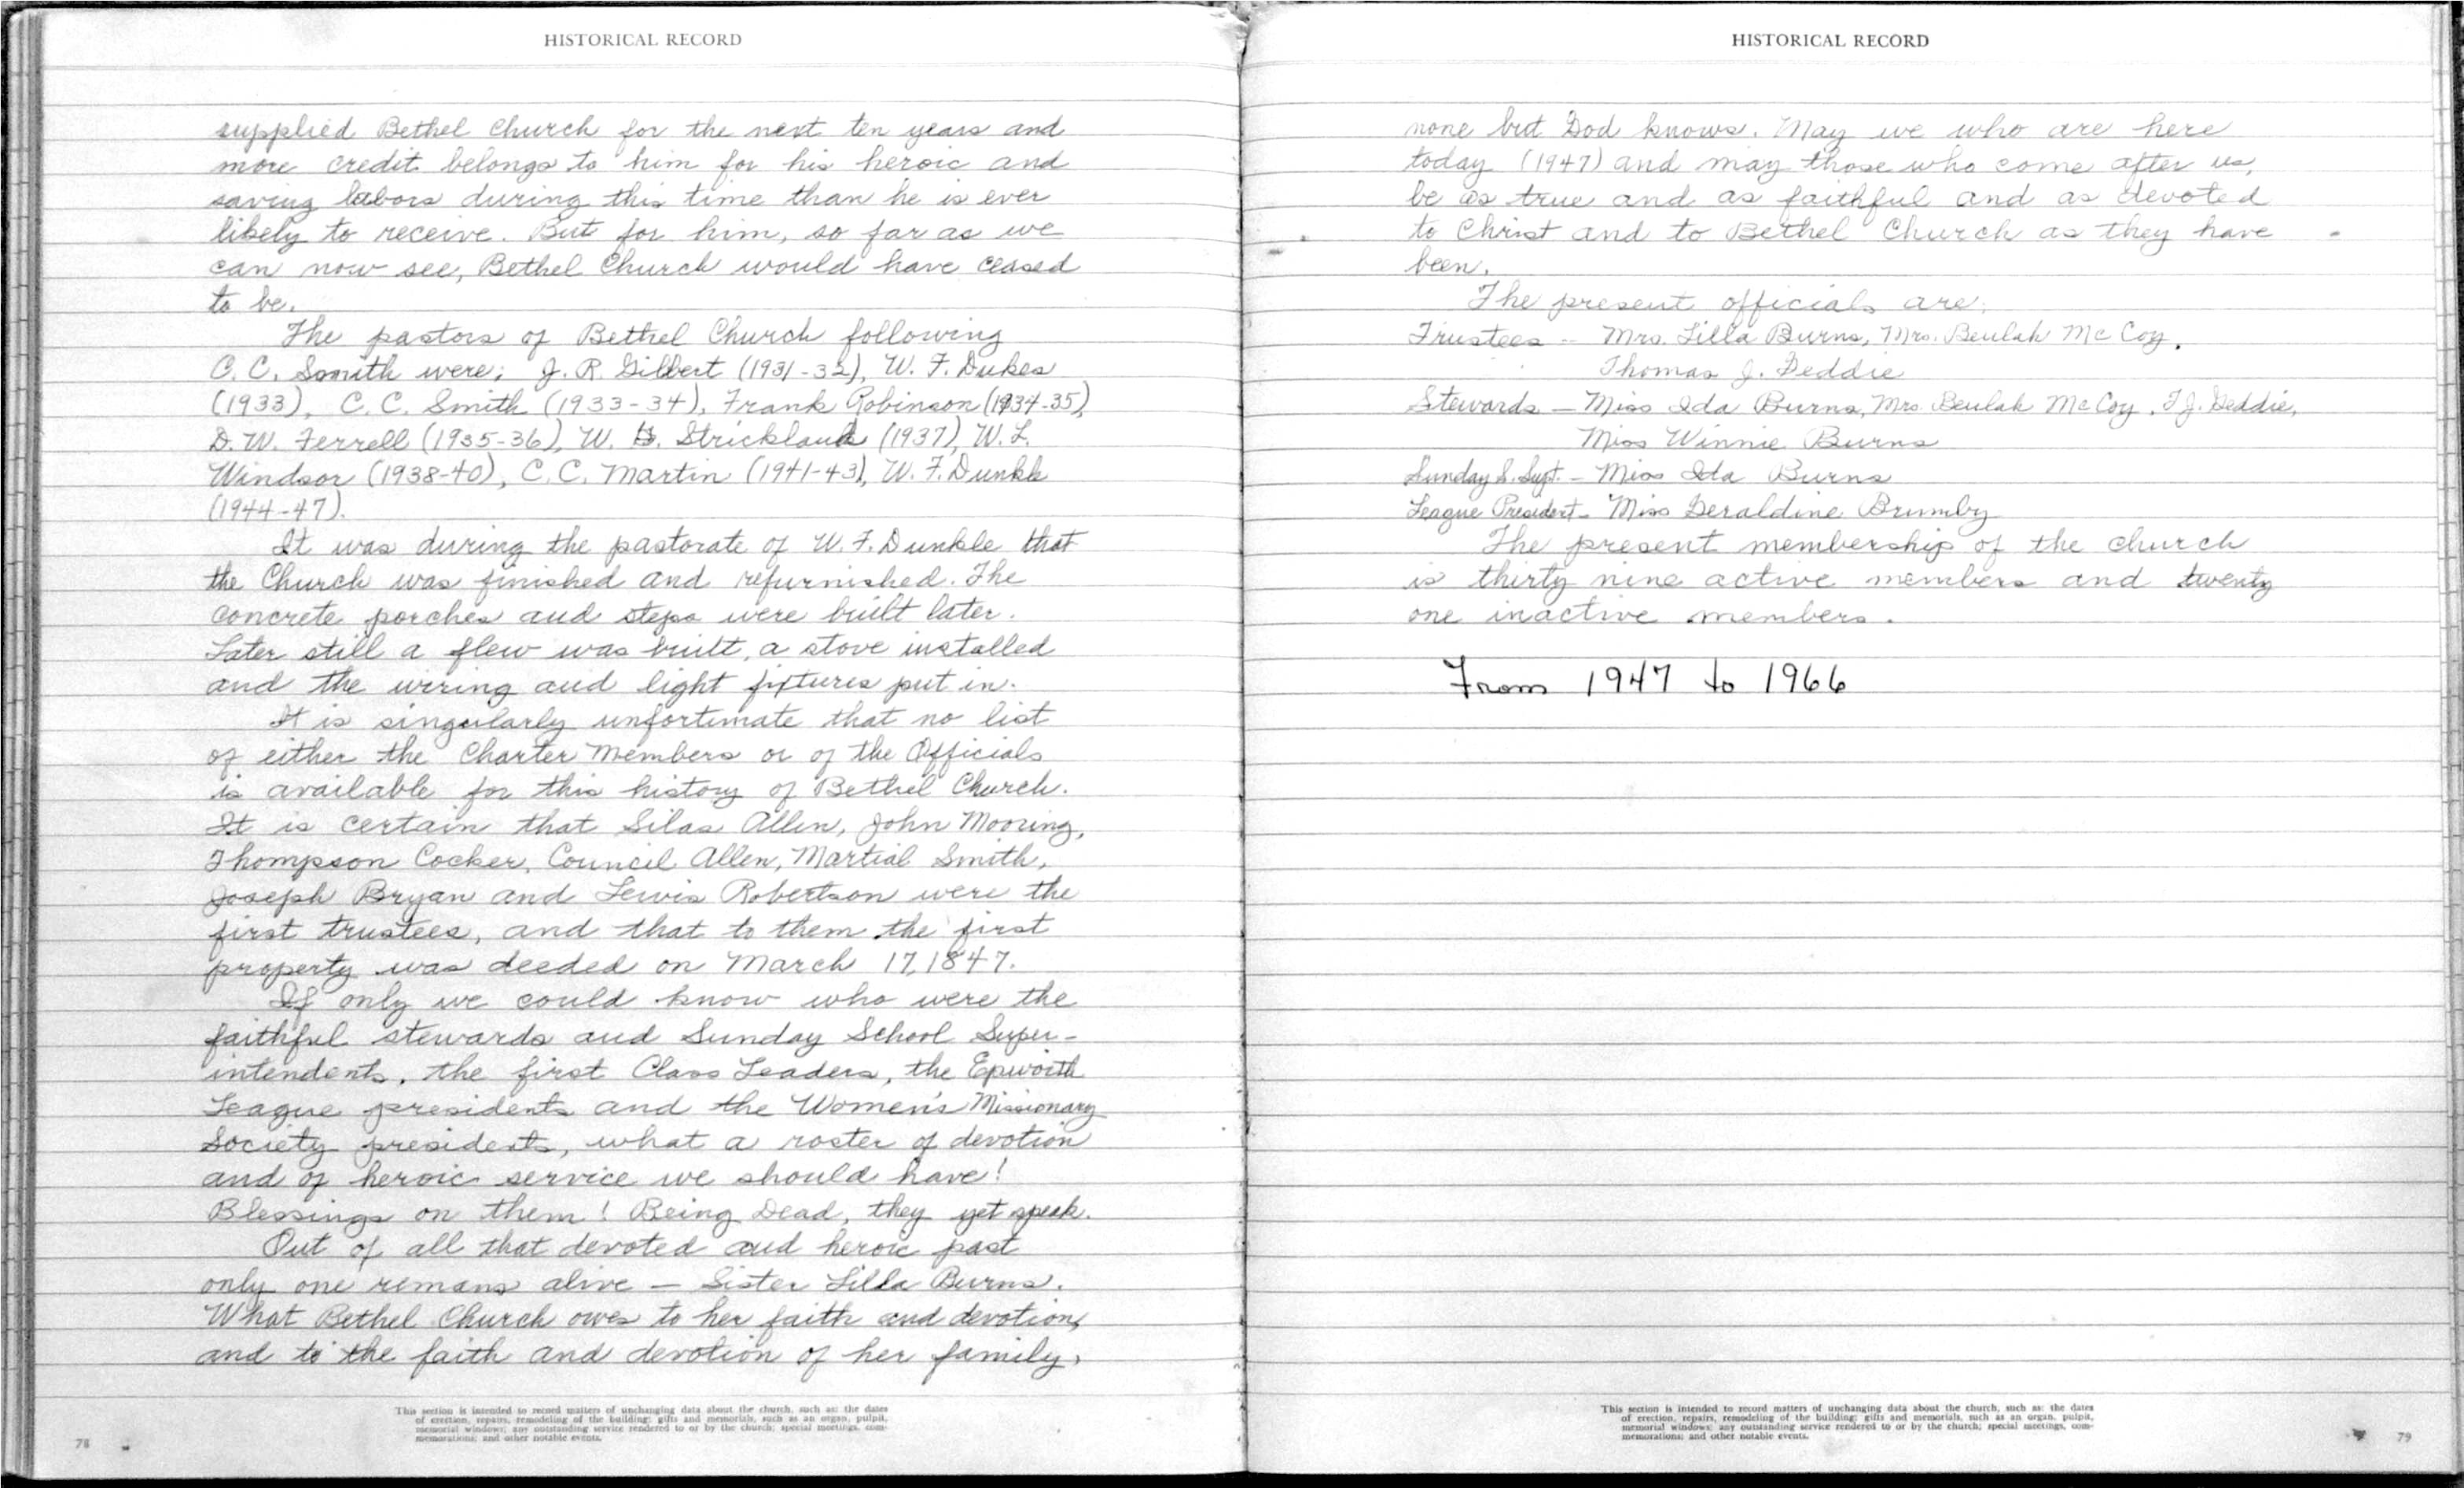 HISTORICAL RECORD
supplied Bethel Church for the next ten years and
more credit belongs to him for his heroic and
saving labors during this time than he is ever
likely to receive. But for him, so far as we
can now see, Bethel Church would have ceased
to be.
The pastors of Bethel Church following
C. C. Smith were; J. R. Gilbert (1931-32), W. F. Dukes
(1933), C. C. Smith (1933-34), Frank Robinson (1934-35),
D. W. Ferrell (1935-36), W. H. Strickland (1937), W. L.
Windsor (1938-40), C. C. Martin (1941-43), W. F. Dunkle
(1944-47).
It was during the pastorate of W. F. Dunkle that
the Church was finished and refurnished. The
concrete porches and steps were built later.
Later still a flew was built, a stove installed
and the wiring and light fixtures put in.
It is singularly unfortunate that no list
of either the Charter Members or of the Officials
is available for this history of Bethel Church.
It is certain that Silas Allen, John Mooring,
Thompson Cocker, Council Allen, Martial Smith,
Joseph Bryan and Lewis Robertson were the
first trustees, and that to them the first
property was deeded on March 17, 1847.
If only we could know who were the
faithful stewards and Sunday School Super-
intendents, the first Class Leaders, the Epworth
League presidents and the Women's Missionary
Society presidents, what a roster of devotion
and of heroic service we should have!
Blessings on them! Being Dead, they yet speak.
Out of all that devoted and heroic past
only one remans alive — Sister Lilla Burns.
What Bethel Church owes to her faith and devotion,
and to the faith and devotion of her family,
This section is intended to record matters of unchanging data about the church, such as: the dates
of erection, repairs, remodeling of the building; gifts and memorials, such as an organ, pulpit,
memorial windows; any outstanding service rendered to or by the church; special meetings, com-
memorations; and other notable events.
78
HISTORICAL RECORD
none but God knows. May we who are here
today (1947) and may those who come after us,
be as true and as faithful and as devoted
to Christ and to Bethel Church as they have
been.
The present officials are:
Trustees -- Mrs. Lilla Burns, Mrs. Beulah McCoy,
Thomas J. Geddie
Stewards — Miss Ida Burns, Mrs. Beulah McCoy, T. J. Geddie,
Miss Winnie Burns
Sunday S. Supt. - Miss Ida Burns
League President - Miss Geraldine Brumby
The present membership of the church
is thirty nine active members and twenty
one inactive members.
From 1947 to 1966
This section is intended to record matters of unchanging data about the church, such as: the dates
of erection, repairs, remodeling of the building; gifts and memorials, such as an organ, pulpit,
memorial windows; any outstanding service rendered to or by the church; special meetings, com-
memorations; and other notable events.
79